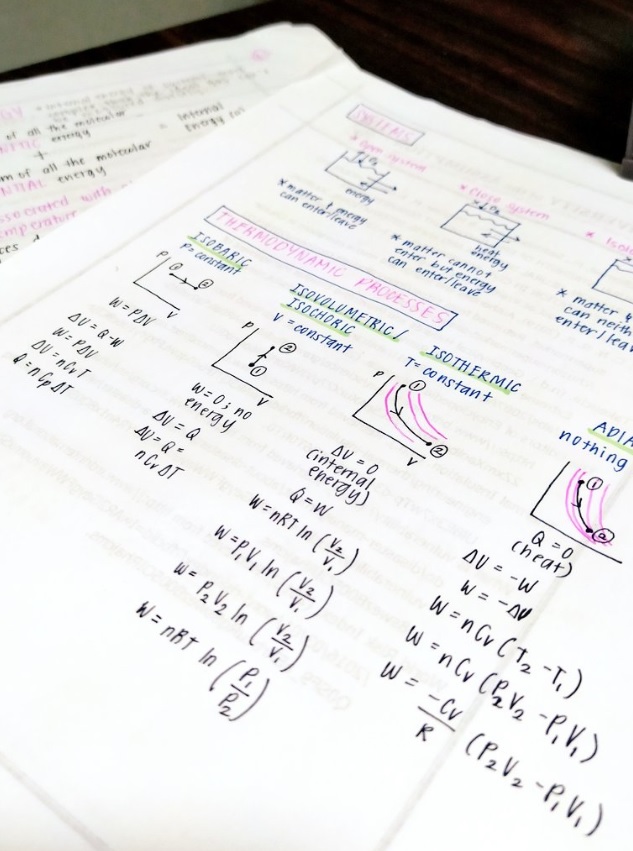 of all the molecular
energy
+
of all the molecular
energy
=
internal
SYSTEMS
* Open system
energy
* matter & energy
can enter/leave
* Close system
heat
energy
* matter cannot
enter but energy
can enter/leave
* matter &
can neith
enter/leav
THERMODYNAMIC PROCESSES
ISOBARIC
P=constant
P
①
②
V
W=PΔV
ΔU=Q-W
W=PΔV
ΔU=nCvT
Q=nCpΔT
ISOVOLUMETRIC/
ISOCHORIC
V=constant
P
②
①
V
W=0; no
energy
ΔU=Q
ΔU=Q=
nCvΔT
ISOTHERMIC
T=constant
P
①
②
V
ΔU=0
(internal
energy)
Q=W
W=nRT ln (V₂/V₁)
W=P₁V₁ ln (V₂/V₁)
W=P₂V₂ ln (V₂/V₁)
W=nRT ln (P₁/P₂)
ADIA
nothing
①
②
Q=0
(heat)
ΔU=-W
W=-ΔU
W=nCv(T₂-T₁)
W=nCv(P₂V₂-P₁V₁)
W=-Cv/R (P₂V₂-P₁V₁)